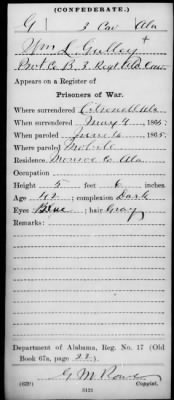 (CONFEDERATE.)
G 3 Cav Ala
Wm L. Gulley +
Pvt Co B. 3. Regt Ala Cav.
Appears on a Register of
Prisoners of War.
Where surrendered Citronell Ala
When surrendered May 4, 1865.
When paroled June 12, 1865.
Where paroled Mobile
Residence Monroe Co Ala
Occupation
Height 5 feet 6 inches
Age 42; complexion Dark
Eyes Blue; hair Gray
Remarks:
Department of Alabama, Reg. No. 17 (Old
Book 67a, page 22).
G. M. Rowe
(639) Copyist.